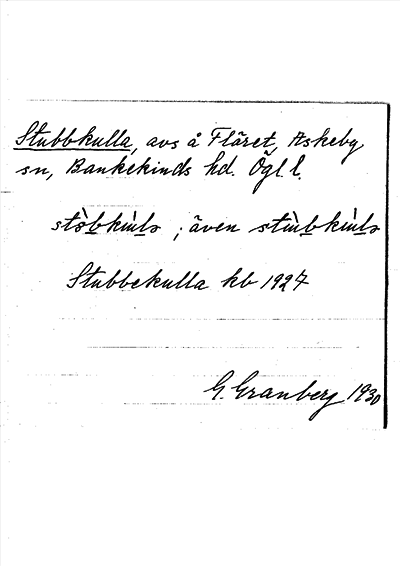 Stubbkulla, avs å Fläret, Askeby
sn, Bankekinds hd. Ögl. l.
stòbkùla ; även stùbkùla
Stubbekulla kb 1927
G. Granberg 1930